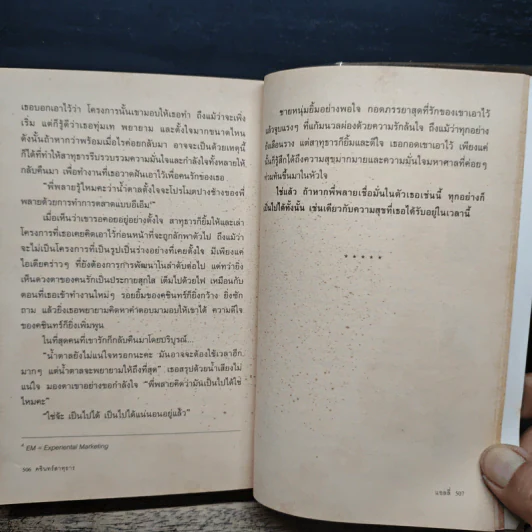 เธอบอกเอาไว้ว่า โครงการนั้นเขามอบให้เธอทำ ถึงแม้ว่าจะเพิ่ง
เริ่ม แต่ก็รู้ดีว่าเธอทุ่มเท พยายาม และตั้งใจมากขนาดไหน
ดังนั้นถ้าหากว่าพร้อมเมื่อไรค่อยกลับมา อาจจะเป็นด้วยเหตุนี้
ก็ได้ที่ทำให้สาทุธารรีบรวบรวมความมั่นใจและกำลังใจทั้งหลายให้
กลับคืนมา เพื่อทำงานที่เธอวาดฝันเอาไว้เพื่อคนรักของเธอ
“พี่พลายรู้ไหมคะว่าน้ำตาลตั้งใจจะโปรโมตปางช้างของพี่
พลายด้วยการทำการตลาดแบบอีเอ็ม⁴”
เมื่อเห็นว่าเขารอคอยอยู่อย่างตั้งใจ สาทุธารก็ยิ้มให้และเล่า
โครงการที่เธอเคยคิดเอาไว้ก่อนหน้าที่จะถูกลักพาตัวไป ถึงแม้ว่า
จะไม่เป็นโครงการที่เป็นรูปเป็นร่างอย่างที่เคยตั้งใจ มีเพียงแค่
ไอเดียคร่าวๆ ที่ยังต้องการการพัฒนาในลำดับต่อไป แต่ทว่ายิ่ง
เห็นดวงตาของคนรักเป็นประกายสุกใส เต็มไปด้วยไฟ เหมือนกับ
ตอนที่เธอเข้าทำงานใหม่ๆ รอยยิ้มของคชินทร์ก็ยิ่งกว้าง ยิ่งซัก
ถาม แล้วยิ่งเธอพยายามคิดหาคำตอบมามอบให้เขาได้ ความดีใจ
ของคชินทร์ก็ยิ่งเพิ่มพูน
ในที่สุดคนที่เขารักก็กลับคืนมาโดยบริบูรณ์...
“น้ำตาลยังไม่แน่ใจหรอกนะคะ มันอาจจะต้องใช้เวลาอีก
มากๆ แต่น้ำตาลจะพยายามให้ถึงที่สุด” เธอสรุปด้วยน้ำเสียงไม่
แน่ใจ มองตาเขาอย่างขอกำลังใจ “พี่พลายคิดว่ามันเป็นไปได้ใช่
ไหมคะ”
“ใช่จ้ะ เป็นไปได้ เป็นไปได้แน่นอนอยู่แล้ว”
⁴ EM = Experiential Marketing
506 คชินทร์สาทุธาร
ชายหนุ่มยิ้มอย่างพอใจ กอดภรรยาสุดที่รักของเขาเอาไว้
แล้วจูบแรงๆ ที่แก้มนวลผ่องด้วยความรักล้นใจ ถึงแม้ว่าทุกอย่าง
ยังเลือนราง แต่สาทุธารก็ยิ้มและดีใจ เธอกอดเขาเอาไว้ เพียงแค่
นั้นก็รู้สึกได้ถึงความสุขมากมายและความมั่นใจมหาศาลที่ค่อยๆ
ท่วมท้นขึ้นมาในหัวใจ
ใช่แล้ว ถ้าหากพี่พลายเชื่อมั่นในตัวเธอเช่นนี้ ทุกอย่างก็
เป็นไปได้ทั้งนั้น เช่นเดียวกับความสุขที่เธอได้รับอยู่ในเวลานี้
* * * * *
แจลลี่ 507